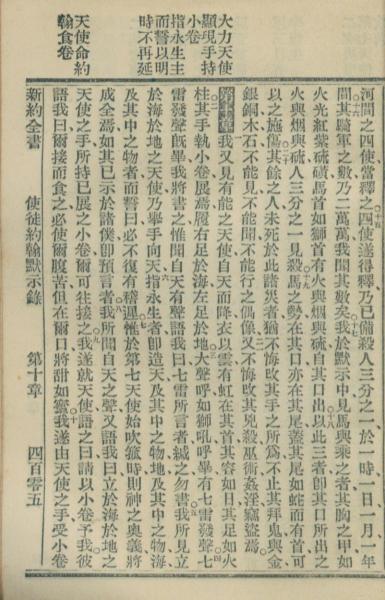 大力天使
顯現手持
小卷
指永生主
而誓以明
時不再延
天使命約
翰食卷
河間之四使當釋之四使遂得釋乃已備殺人三分之一於一時一日一月一年
間其騎軍之數乃二萬萬我聞其數矣我於默示中見馬與乘之者其胸之甲如
火光紅紫硫磺馬首如獅首有火與烟與硫自其口出以此三者卽其口所出之
火與烟與硫人三分之一見殺馬之勢在其口亦在其尾蓋其尾如蛇而有首可
以之施傷其餘之人未死於此諸災者猶不悔改其手之所爲不止其拜鬼與金
銀銅木石不能見不能聞不能行之偶像又不悔改其兇殺巫術姦淫竊盜焉
我又見有能之天使自天而降衣以雲有虹在其首其容如日其足如火
柱其手執小卷展焉履右足於海左足於地大聲呼如獅吼呼畢有七雷發聲七
雷發聲旣畢我將書之惟聞自天有聲語我曰七雷所言者緘之勿書我所見立
於海於地之天使乃舉手向天指永生者卽造天及其中之物地及其中之物海
及其中之物者而誓曰必不復有稽遲惟於第七天使始吹號時則神之奧義將
成全焉如其已示於諸僕卽預言者我所聞自天之聲又語我曰立於海於地之
天使之手所持已展之小卷爾可往接之我遂就天使語之曰請以小卷予我彼
語我曰爾接而食之必使爾腹苦但在爾口將甜如蜜我遂由天使之手受小卷
新約全書 使徒約翰默示錄 第十章 四百零五